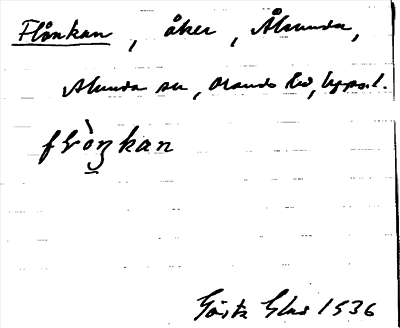 Flånkan, åker, Ålsunda,
Alunda sn, Olands hd, Uppsal.
flòŋkan
Gösta Ehrs 1936